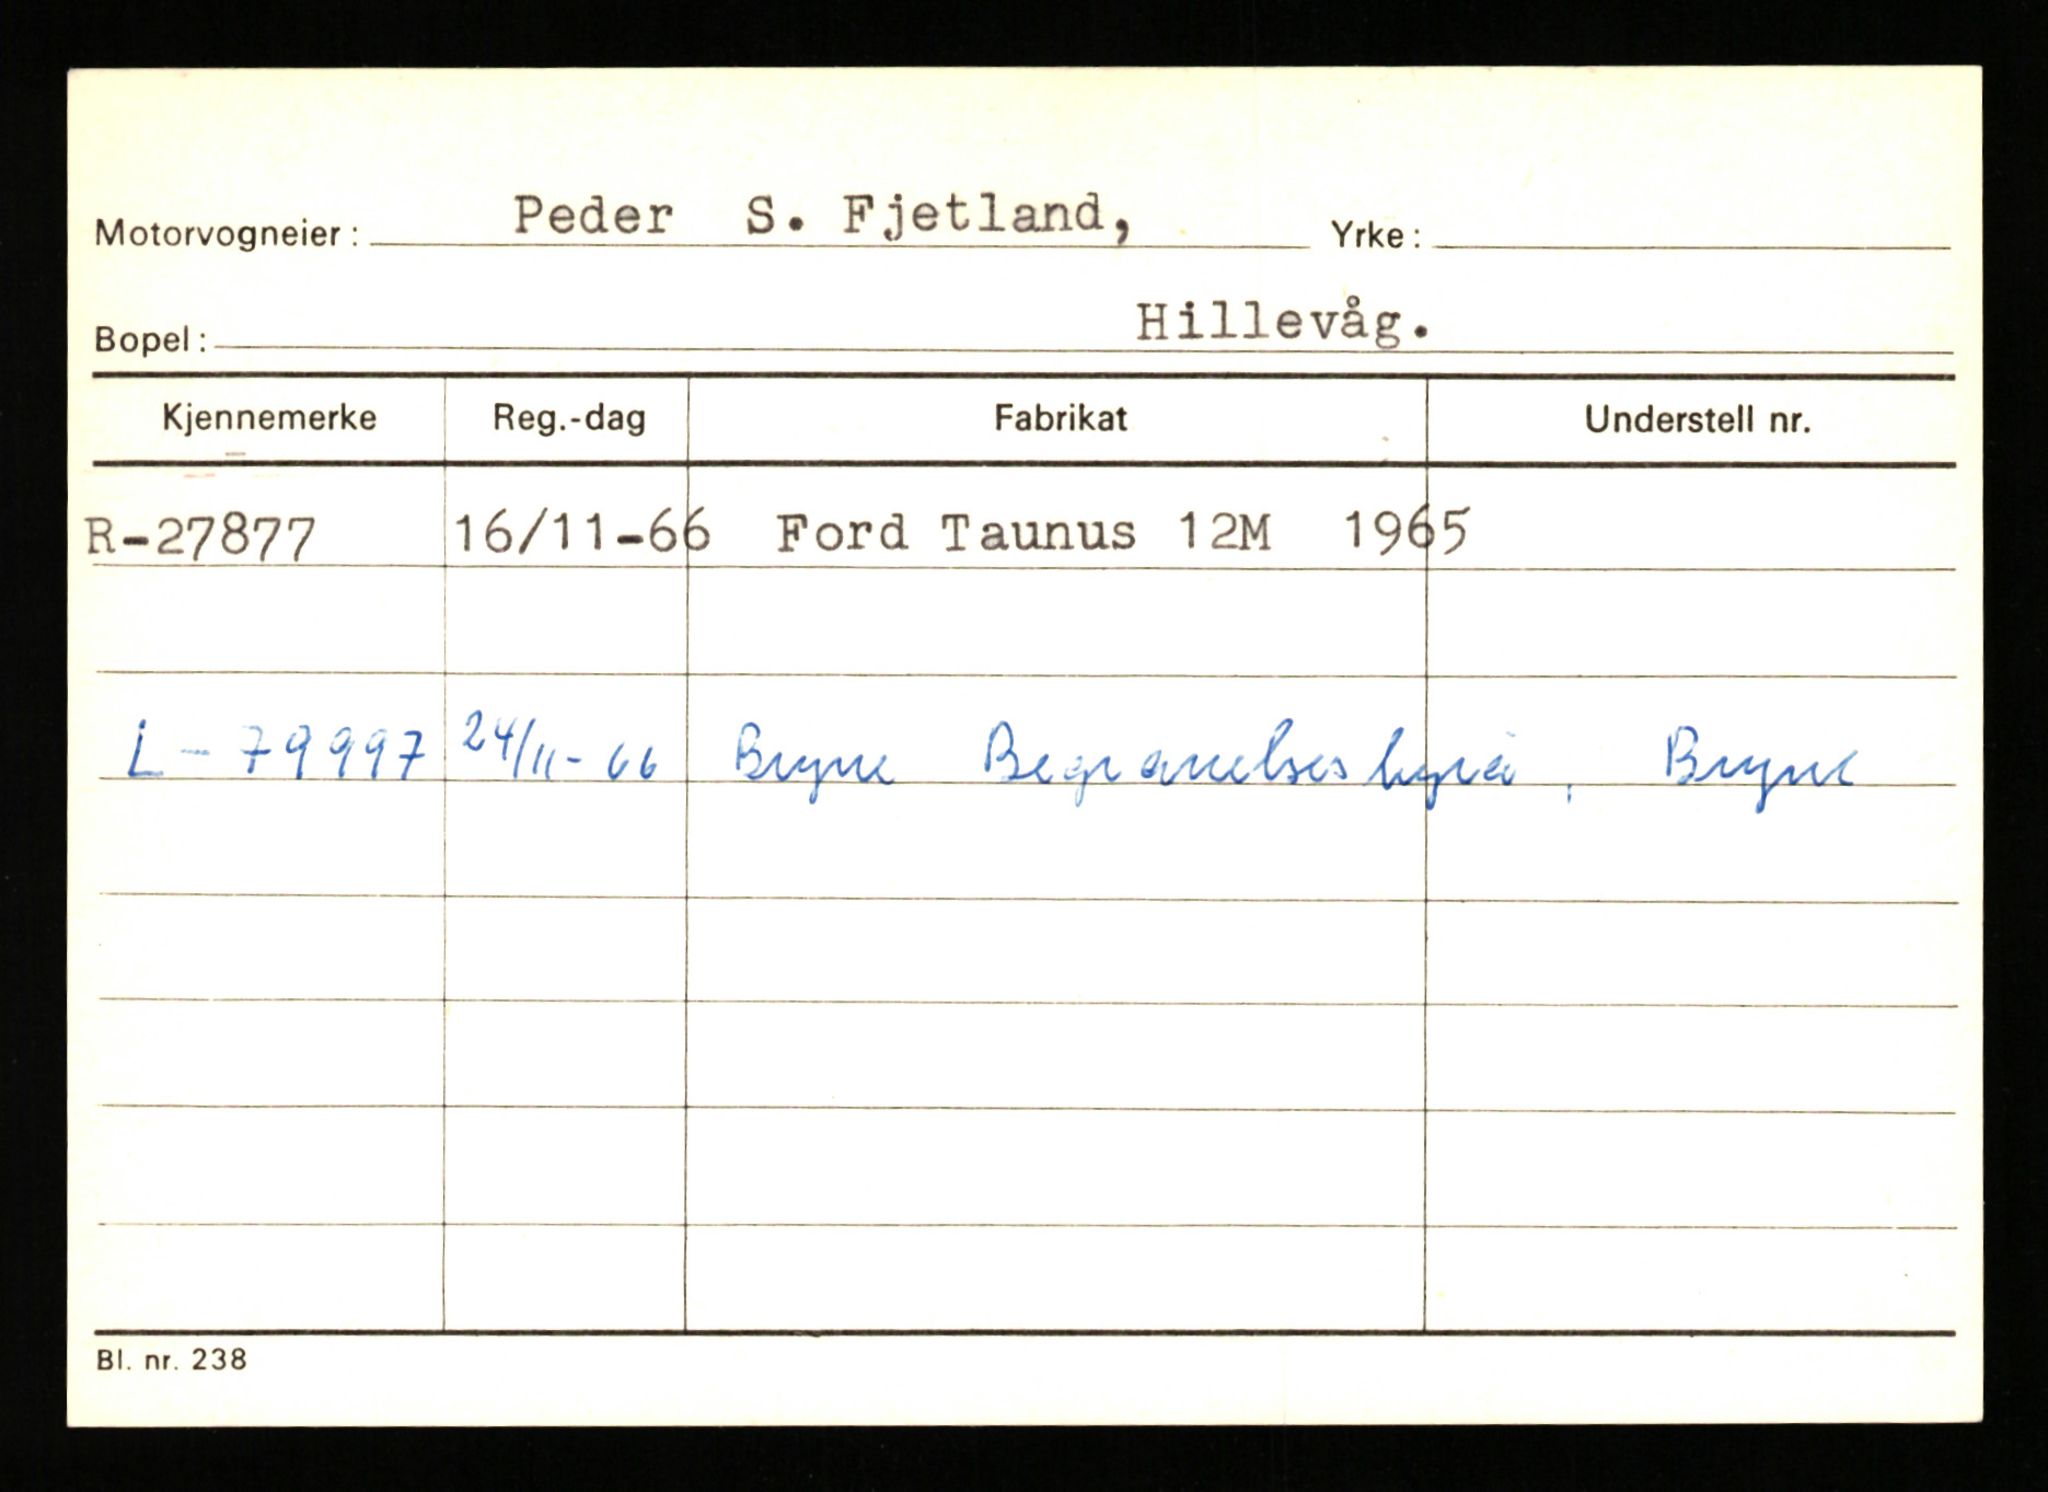 Motorvogneier: Peder S. Fjetland, Yrke:
Bopel: Hillevåg.
Kjennemerke Reg.-dag Fabrikat Understell nr.
R-27877 16/11-66 Ford Taunus 12M 1965
L-79997 24/11-66 Bryne Begravelsesbyrå, Bryne
Bl. nr. 238